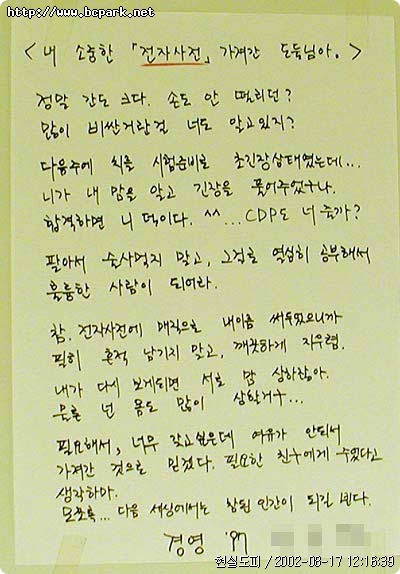 http://www.bcpark.net
< 내 소중한 「전자사전」 가져간 도둑님아. >
정말 간도 크다. 손도 안 떨리던?
많이 비싼거란걸 너도 알고있지?
다음주에 치를 시험준비로 초긴장상태였는데...
니가 내 맘을 알고 긴장을 풀어주었구나.
합격하면 니 덕이다. ^^ ... CDP도 너 줄까?
팔아서 술사먹지 말고, 그걸로 열심히 공부해서
훌륭한 사람이 되어라.
참. 전자사전에 매직으로 내이름 써두었으니까
필히 흔적 남기지 말고, 깨끗하게 지우렴.
내가 다시 보게되면 서로 맘 상하잖아.
물론 넌 몸도 많이 상할거구...
필요해서, 너무 갖고싶은데 여유가 안되서
가져간 것으로 믿겠다. 필요한 친구에게 주었다고
생각하마.
모쪼록... 다음 세상에서는 참된 인간이 되길 빈다.
경영 '97
현실도피 / 2002-08-17 12:16:39